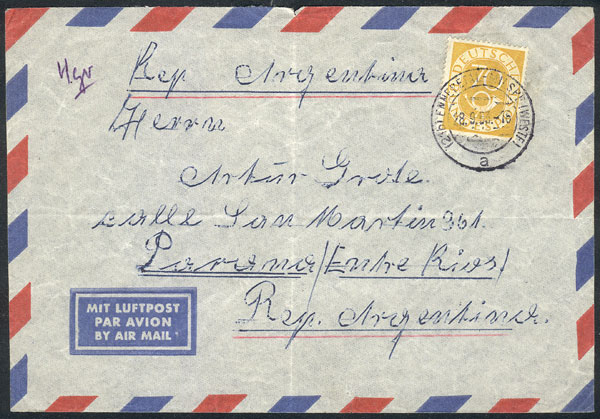 Hgr
Rep Argentina
Herrn
Artur Grote.
calle San Martin 361.
Parana/(Entre Rios)
Rep. Argentina.
DEUTSCHE
a
MIT LUFTPOST
PAR AVION
BY AIR MAIL